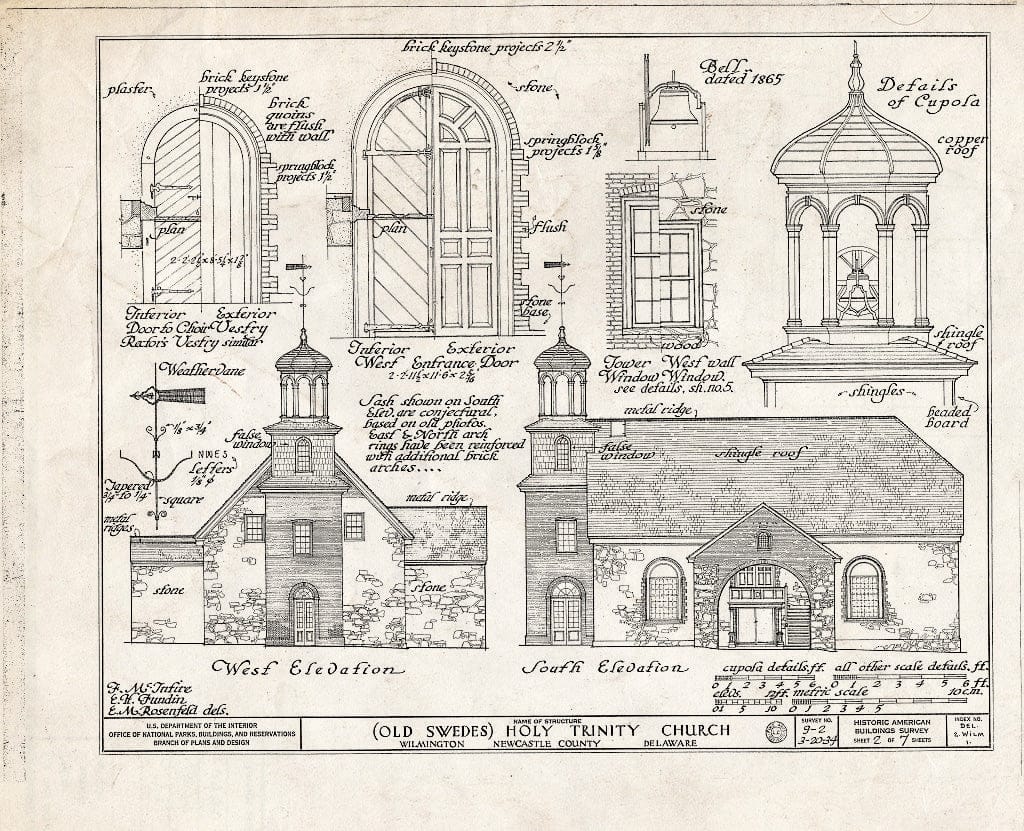 brick keystone projects 2½"
plaster
brick keystone
projects 1½"
brick
quoins
are flush
with wall
springblock
projects 1½"
plan
Interior Exterior
Door to Choir Vestry
Rector's Vestry similar
stone
springblock
projects 1⅜"
flush
plan
stone
base
Interior Exterior
West Entrance Door
Bell
dated 1865
stone
wood
Tower West wall
Window Window.
see details, sh. no.5.
Details
of Cupola
copper
roof
shingle
roof
shingles
beaded
board
Weathervane
⅛" x ¾"
NWES
Letters
⅛" φ
Tapered
¾" to ¼"
square
metal
ridges
false
window
Sash shown on South
Elev. are conjectural,
based on old photos.
East & North arch
rings have been reinforced
with additional brick
arches....
metal ridge
stone
stone
West Elevation
metal ridge
false
window
shingle roof
South Elevation
cupola details, ft. all other scale details, ft.
0 1 2 3 4 5 6 0 1 2 3 4 5 6 ft.
elevs. 10ft. metric scale 10cm.
0 1 5 10 0 1 2 3 4 5
F. McIntire
E.H. Fundin
E.M. Rosenfeld dels.
U.S. DEPARTMENT OF THE INTERIOR
OFFICE OF NATIONAL PARKS, BUILDINGS, AND RESERVATIONS
BRANCH OF PLANS AND DESIGN
NAME OF STRUCTURE
(OLD SWEDES) HOLY TRINITY CHURCH
WILMINGTON NEWCASTLE COUNTY DELAWARE
SURVEY NO.
9-2
3-20-34
HISTORIC AMERICAN
BUILDINGS SURVEY
SHEET 2 OF 7 SHEETS
INDEX NO.
DEL.
2. WILM
1.